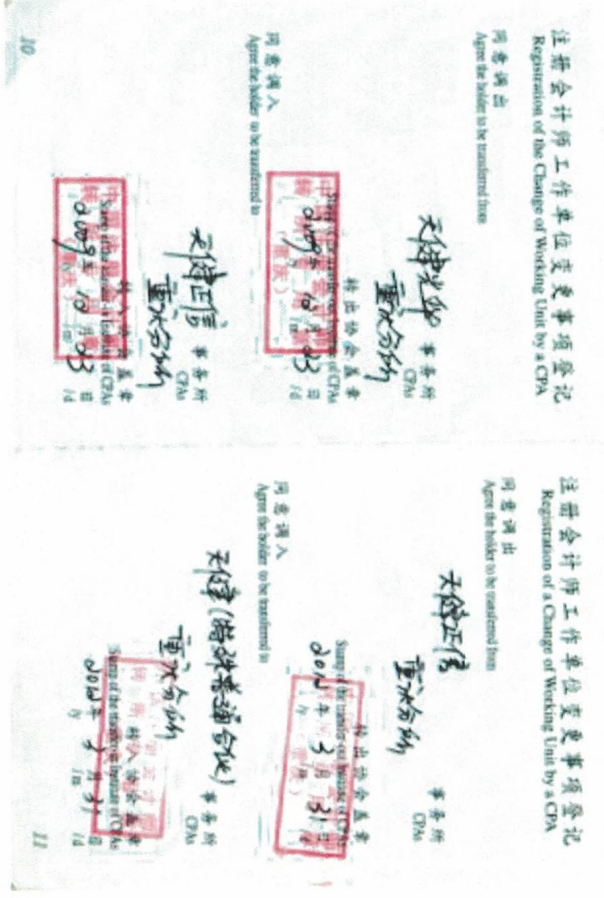 注册会计师工作单位变更事项登记
Registration of the Change of Working Unit by a CPA
同意调出
Agree the holder to be transferred from
天健光华
重庆分所
事务所
CPAs
转出协会盖章
Stamp of the transfer-out Institute of CPAs
2009年 10月 23日
/y /m /d
同意调入
Agree the holder to be transferred to
天健正信
重庆分所
事务所
CPAs
转入协会盖章
Stamp of the transfer-in Institute of CPAs
2009年 10月 23日
/m /d
10
注册会计师工作单位变更事项登记
Registration of a Change of Working Unit by a CPA
同意调出
Agree the holder to be transferred from
天健正信
重庆分所
事务所
CPAs
转出协会盖章
Stamp of the transfer-out Institute of CPAs
2012年 3月 31日
/y /m /d
同意调入
Agree the holder to be transferred to
天健(特殊普通合伙)
重庆分所
事务所
CPAs
转入协会盖章
Stamp of the transfer-in Institute of CPAs
2012年 3月 31日
/y /m /d
11